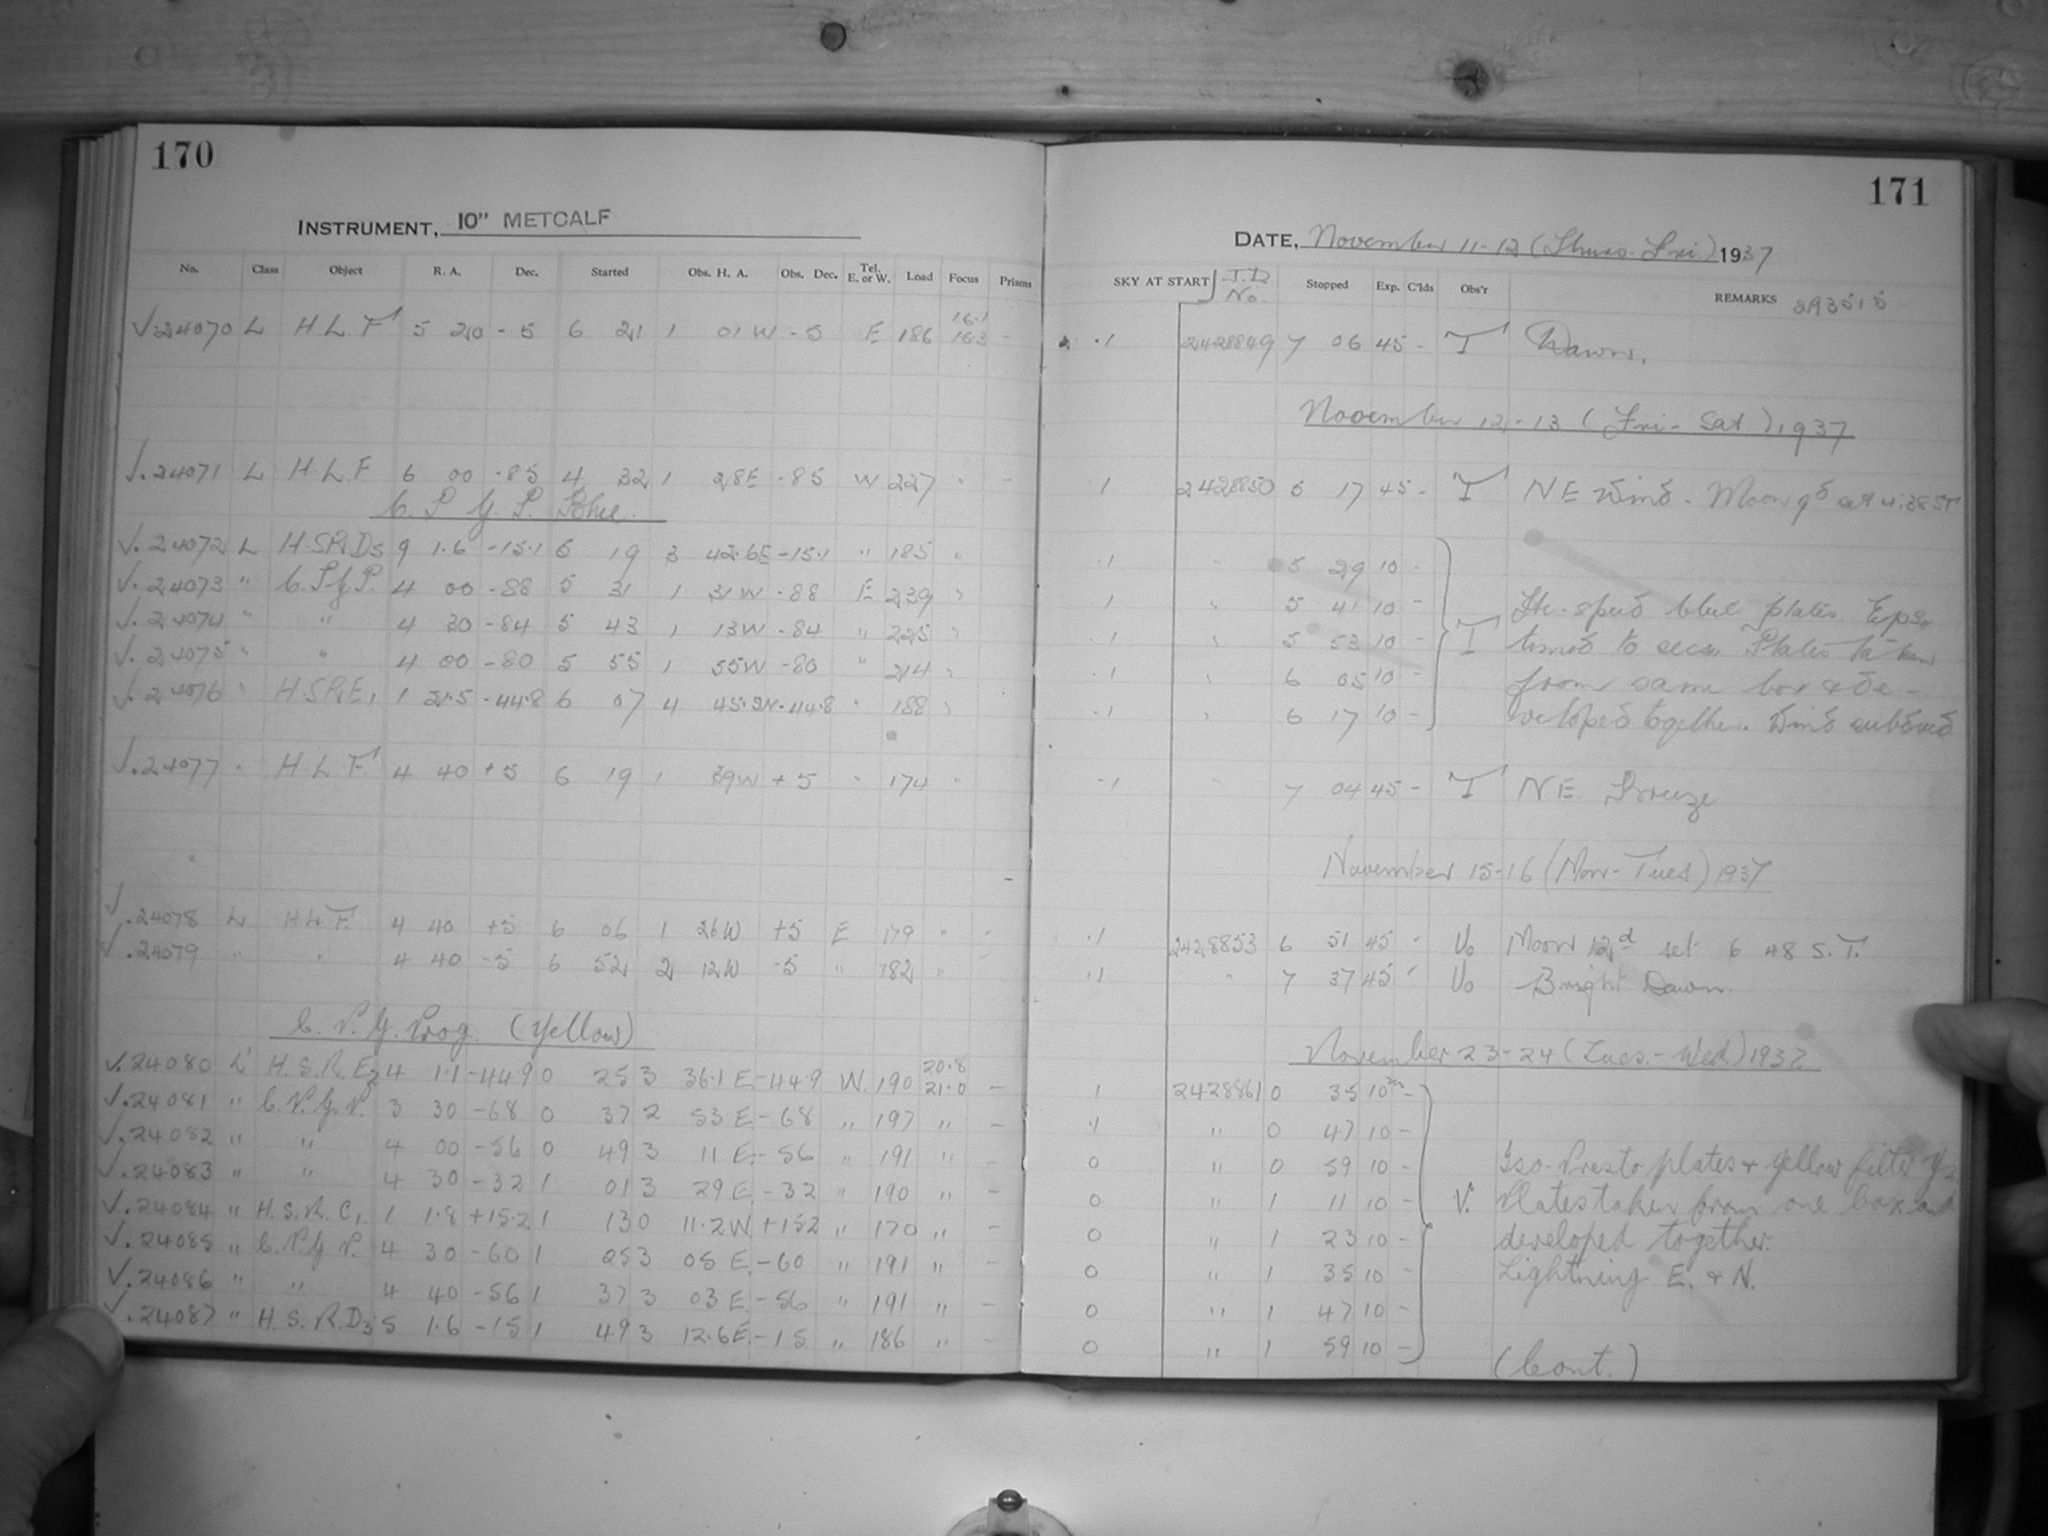 170
INSTRUMENT, 10" METCALF
No. Class Object R. A. Dec. Started Obs. H. A. Obs. Dec. Tel. E. or W. Load Focus Prisms
24070 L H L F 5 20 - 5 6 21 1 01 W - 5 E 186 16.1 16.3 -
24071 L H.L.F 6 00 -85 4 32 1 28E -85 W 227 " -
24072 L 9 1.6 -15.1 5 19 3 42.6E -15.1 " 185 "
24073 " 4 00 -88 5 31 1 31W -88 E 239 "
24074 " " 4 30 -84 5 43 1 13W -84 " 225 "
24075 " " 4 00 -80 5 55 1 55W -80 " 214 "
24076 " 1 21.5 -44.8 6 07 4 -44.8 " 188 "
24077 " H L F 4 40 +5 6 19 1 39W +5 " 174 "
24078 L H.L.F. 4 40 +5 6 06 1 26W +5 E 179 " -
24079 " " 4 40 -5 6 52 2 12W -5 " 182 " -
C. P. G. Prog. (Yellow)
24080 L H.S.R.E2 4 1.1 -44.9 0 25 3 36.1 E. -44.9 W. 190 20.8 21.0 -
24081 " C.P.G.P. 3 30 -68 0 37 2 53 E. -68 " 197 " -
24082 " " 4 00 -56 0 49 3 11 E. -56 " 191 " -
24083 " " 4 30 -32 1 01 3 29 E. -32 " 190 " -
24084 " H.S.R. C1. 1 1.8 +15.2 1 13 0 11.2W +15.2 " 170 " -
24085 " C.P.G.P. 4 30 -60 1 25 3 05 E. -60 " 191 " -
24086 " " 4 40 -56 1 37 3 03 E. -56 " 191 " -
24087 " H.S.R.D3 5 1.6 -15 1 49 3 12.6E. -15 " 186 " -
171
DATE, November 11-12 (Thurs-Fri) 1937
SKY AT START J.D. No. Stopped Exp. C'lds Obs'r REMARKS 293515
.1 2428849 7 06 45 - T Dawn.
November 12-13 (Fri-Sat) 1937
.1 2428850 5 17 45 - T NE Wind. Moon 9d
.1 " 5 29 10 -
.1 " 5 41 10 - blue plates.
.1 " 5 53 10 - T timed to secs. Plates taken
.1 " 6 05 10 - from same box & de-
.1 " 6 17 10 - veloped together. Wind subsided
.1 " 7 04 45 - T NE Breeze
November 15-16 (Mon-Tues) 1937
.1 2428853 6 51 45 Vo Moon 12d set 6 48 S.T.
.1 " 7 37 45 Vo Bright Dawn.
November 23-24 (Tues.-Wed.) 1937
1 2428861 0 35 10m -
.1 " 0 47 10 -
0 " 0 59 10 - Iso-Presto plates + yellow filter
0 " 1 11 10 - V. Plates taken from one box and
0 " 1 23 10 - developed together.
0 " 1 35 10 - Lightning E. & N.
0 " 1 47 10 -
0 " 1 59 10 -
(Cont.)